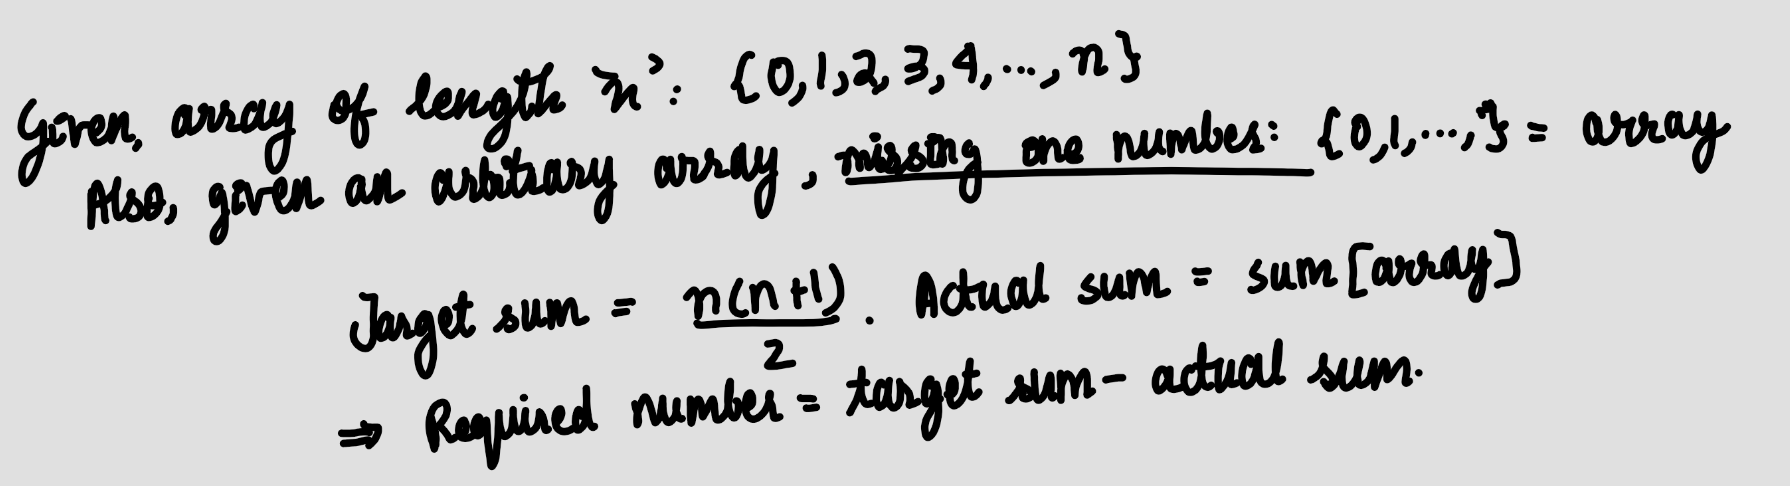 Given, array of length 'n': {0,1,2,3,4,...,n}
Also, given an arbitrary array, missing one number: {0,1,...,n} = array
Target sum = n(n+1)/2. Actual sum = sum[array]
⇒ Required number = target sum - actual sum.